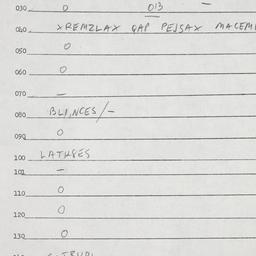 030 0 013 -
040 XREMZLAX GAP PEJSAX MACEM
050 0
060 0
070 -
080 BLINCES/-
090 0
100 LATHSES
101 -
110 0
120 0
130 0